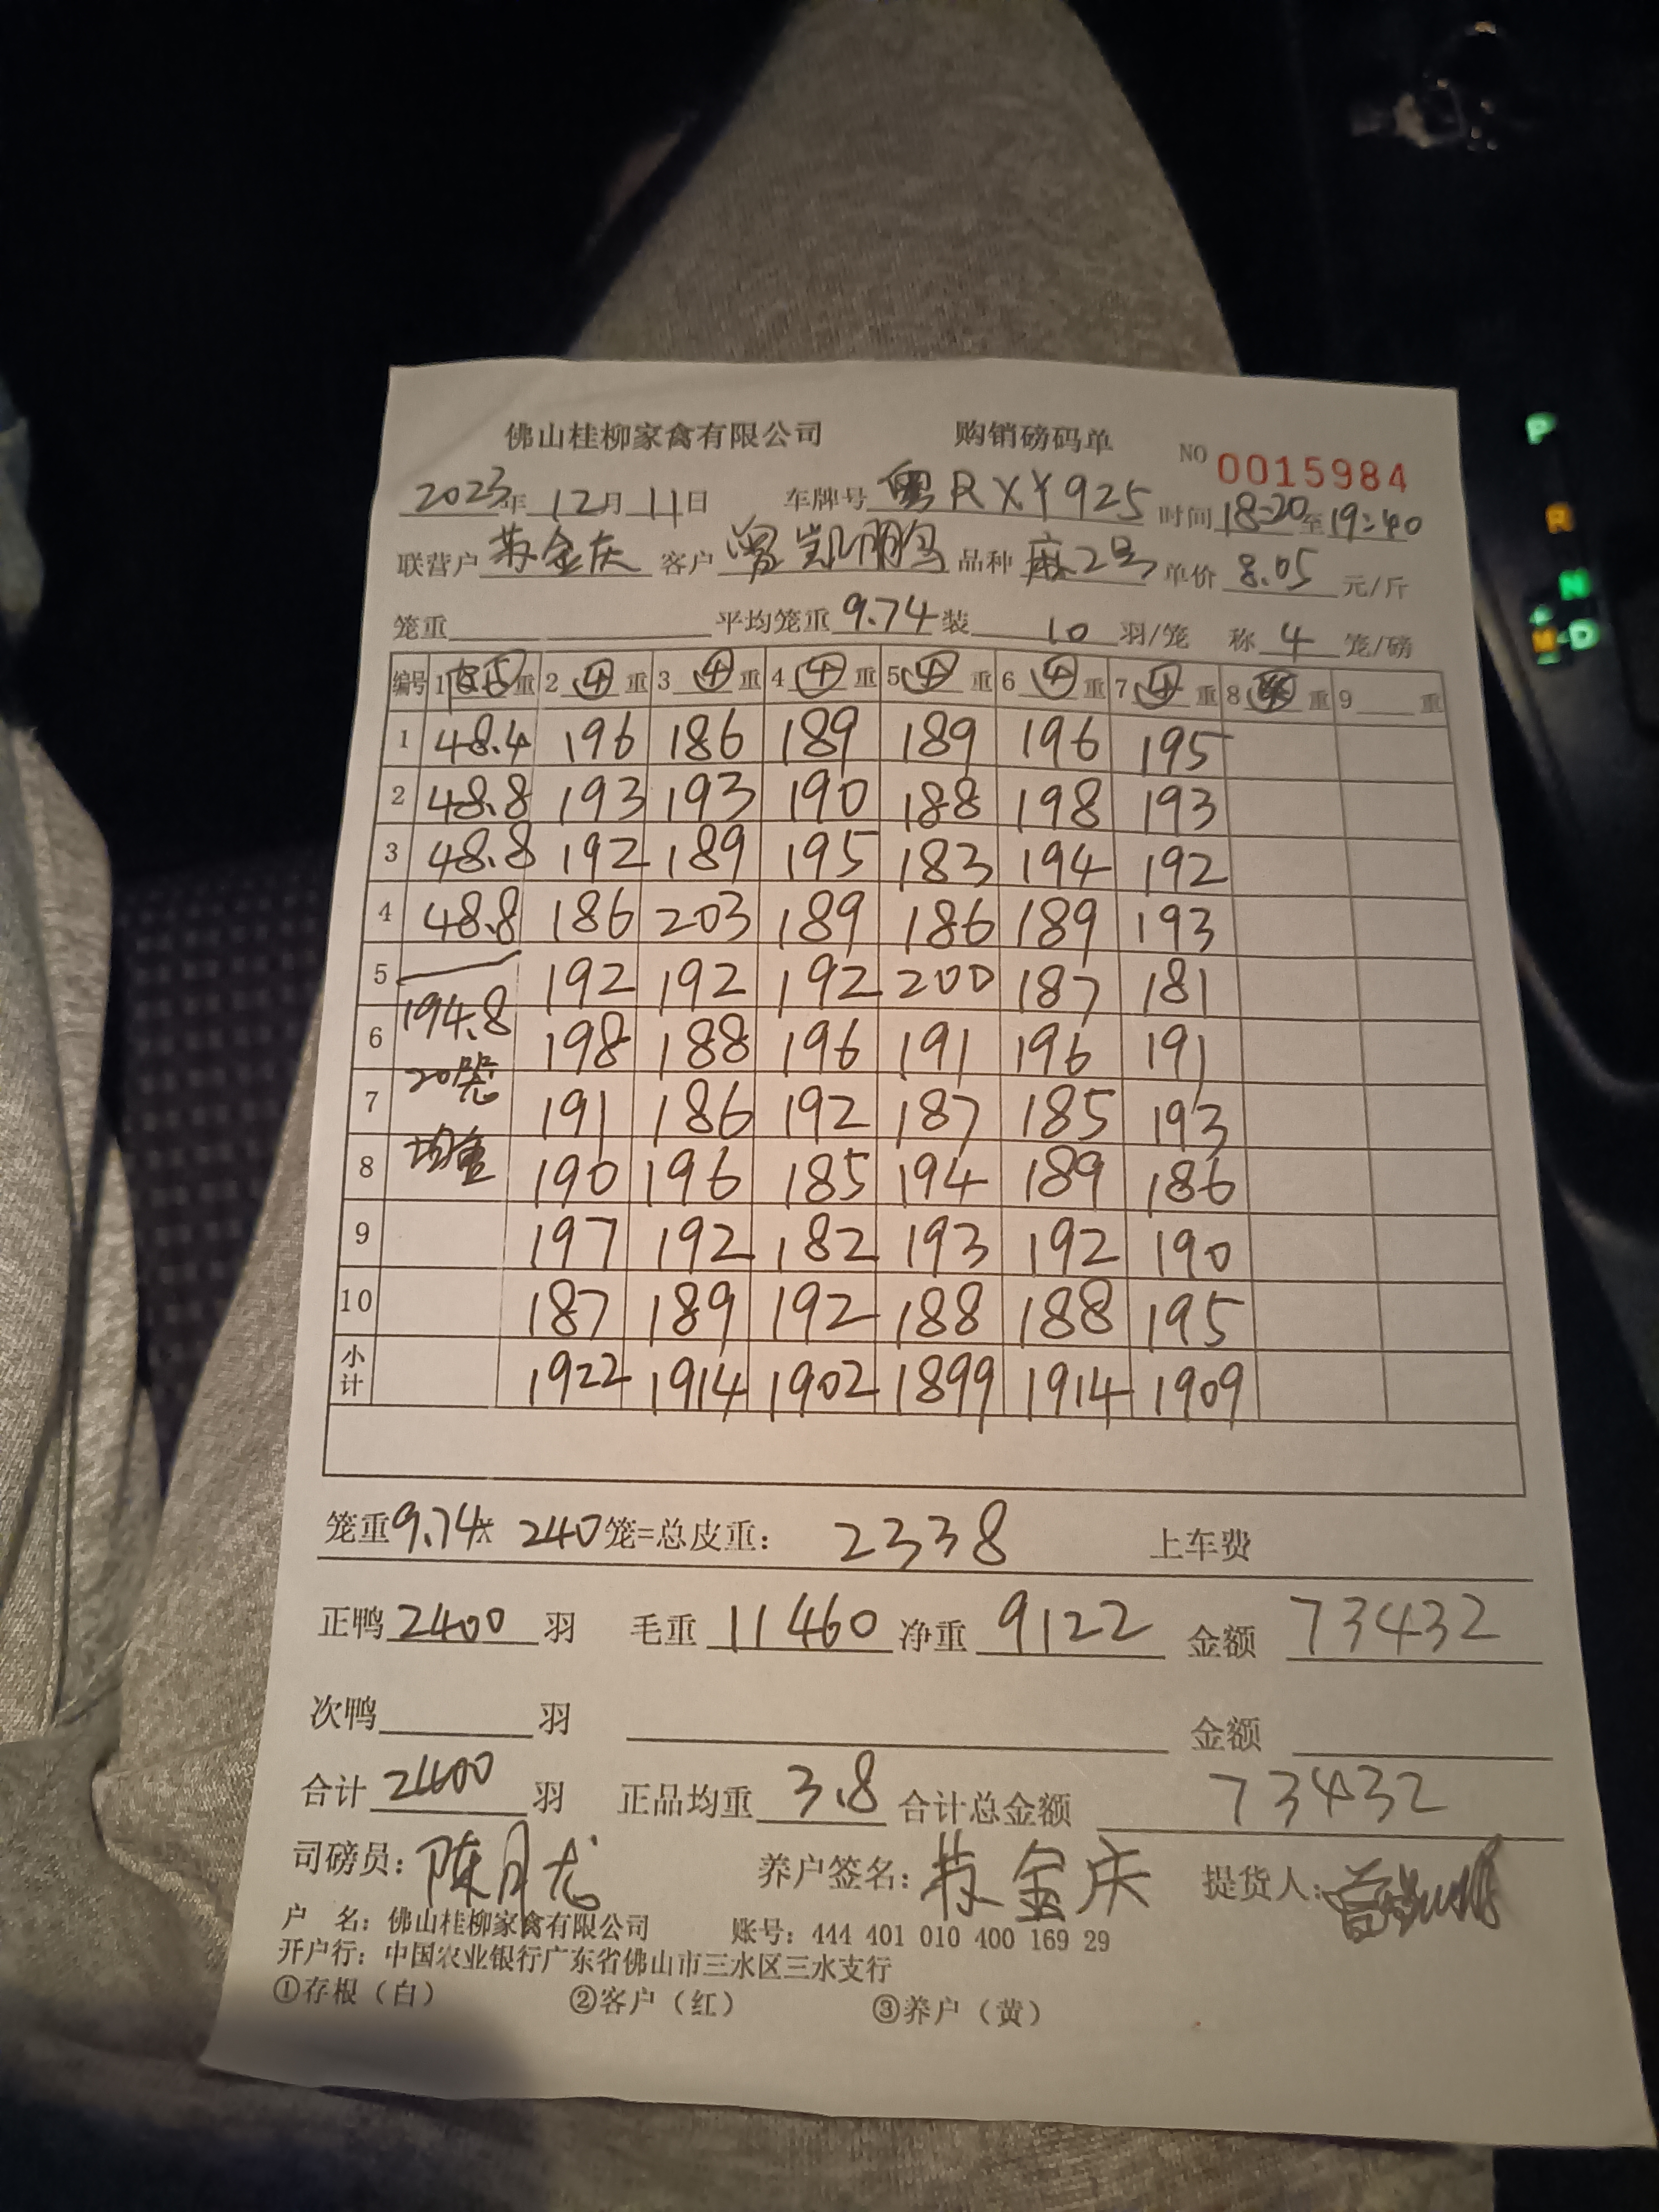 佛山桂柳家禽有限公司 购销磅码单 NO 0015984
2023年 12月 11日 车牌号 粤RXY925 时间 18:20至19:40
联营户 苏金庆 客户 曾凯鹏 品种 麻2号 单价 8.05 元/斤
笼重 平均笼重 9.74 装 10 羽/笼 称 4 笼/磅
编号 1 重 2 ④ 重 3 ④ 重 4 ④ 重 5 ④ 重 6 ④ 重 7 ④ 重 8 重 9 重
1 48.4 196 186 189 189 196 195
2 48.8 193 193 190 188 198 193
3 48.8 192 189 195 183 194 192
4 48.8 186 203 189 186 189 193
5 192 192 192 200 187 181
6 194.8 198 188 196 191 196 191
7 20笼 191 186 192 187 185 193
8 均重 190 196 185 194 189 186
9 197 192 182 193 192 190
10 187 189 192 188 188 195
小计 1922 1914 1902 1899 1914 1909
笼重 9.74 × 240 笼=总皮重: 2338 上车费
正鸭 2400 羽 毛重 11460 净重 9122 金额 73432
次鸭 羽 金额
合计 2400 羽 正品均重 3.8 合计总金额 73432
司磅员: 陈月龙 养户签名: 苏金庆 提货人:
户 名: 佛山桂柳家禽有限公司 账号: 444 401 010 400 169 29
开户行: 中国农业银行广东省佛山市三水区三水支行
①存根（白） ②客户（红） ③养户（黄）
P
R
N
M D